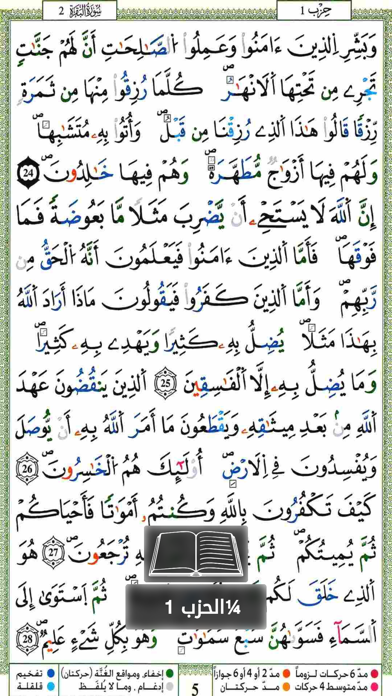 سُورَةُ البَقَرَةِ 2
حِزْب 1
وَبَشِّرِ الذِينَ ءَامَنُواْ وَعَمِلُواْ الصَّٰلِحَٰتِ أَنَّ لَهُمْ جَنَّٰتٖ
تَجْرِے مِن تَحْتِهَا اَلَانْهَٰرُۖ كُلَّمَا رُزِقُواْ مِنْهَا مِن ثَمَرَةٖ
رِّزْقاٗ قَالُواْ هَٰذَا اَلذِے رُزِقْنَا مِن قَبْلُۖ وَأُتُواْ بِهِۦ مُتَشَٰبِهاٗۖ
وَلَهُمْ فِيهَا أَزْوَٰجٞ مُّطَهَّرَةٞۖ وَهُمْ فِيهَا خَٰلِدُونَۖ 24
إِنَّ اَللَّهَ لَا يَسْتَحْےِۦ أَنْ يَّضْرِبَ مَثَلاٗ مَّا بَعُوضَةٗ فَمَا
فَوْقَهَاۖ فَأَمَّا اَلذِينَ ءَامَنُواْ فَيَعْلَمُونَ أَنَّهُ اُلْحَقُّ مِن
رَّبِّهِمْۖ وَأَمَّا اَلذِينَ كَفَرُواْ فَيَقُولُونَ مَاذَا أَرَادَ اَللَّهُ
بِهَٰذَا مَثَلاٗۖ يُضِلُّ بِهِۦ كَثِيراٗ وَيَهْدِے بِهِۦ كَثِيراٗۖ
وَمَا يُضِلُّ بِهِۦ إِلَّا اَلْفَٰسِقِينَ 25 اَلذِينَ يَنقُضُونَ عَهْدَ
اَللَّهِ مِنۢ بَعْدِ مِيثَٰقِهِۦ وَيَقْطَعُونَ مَا أَمَرَ اَللَّهُ بِهِۦ أَنْ يُّوصَلَ
وَيُفْسِدُونَ فِے اِلَارْضِۖ أُوْلَٰئِكَ هُمُ اُلْخَٰسِرُونَۖ 26
كَيْفَ تَكْفُرُونَ بِاللَّهِ وَكُنتُمُ أَمْوَٰتاٗ فَأَحْيَٰكُمْ
ثُمَّ يُمِيتُكُمْ ثُمَّ تُرْجَعُونَۖ 27 هُوَ
اَلذِے خَلَقَ لَكُم ثُمَّ اَسْتَوَىٰ إِلَى
اَلسَّمَاءِ فَسَوَّىٰهُنَّ سَبْعَ سَمَٰوَٰتٖۖ وَهُوَ بِكُلِّ شَےْءٍ عَلِيمٞۖ 28
¼الحزب 1
مدّ 6 حركات لزوماً مدّ 2 أو 4 أو 6 جوازاً
مدّ متوسط 4 حركات مدّ حركتان
5
إخفاء، ومواقع الغُنَّة (حركتان)
إدغام، وما لا يُلفَظ
تفخيم
قلقلة